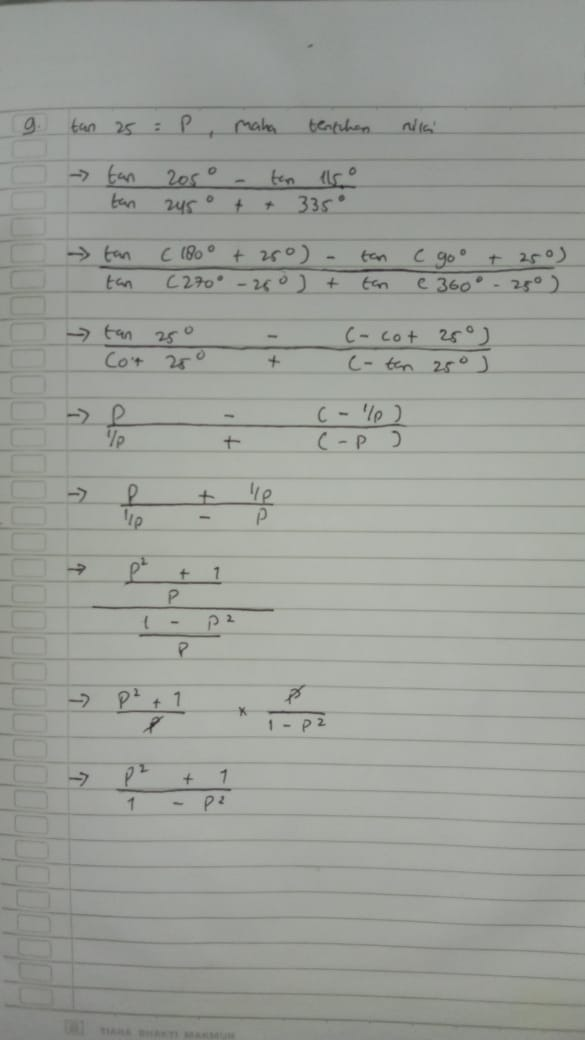 9. tan 25 = P, maka tentukan nilai
→ tan 205° - tan 115°
tan 245° + + 335°
→ tan (180° + 25°) - tan (90° + 25°)
tan (270° - 25°) + tan (360° - 25°)
→ tan 25° - (- cot 25°)
Cot 25° + (- tan 25°)
→ P - (- 1/p)
1/p + (- P)
→ P + 1/p
1/p - P
→ P² + 1
P
1 - P²
P
→ P² + 1 × P
P 1 - P²
→ P² + 1
1 - P²
TIARA BHAKTI MAKMUR